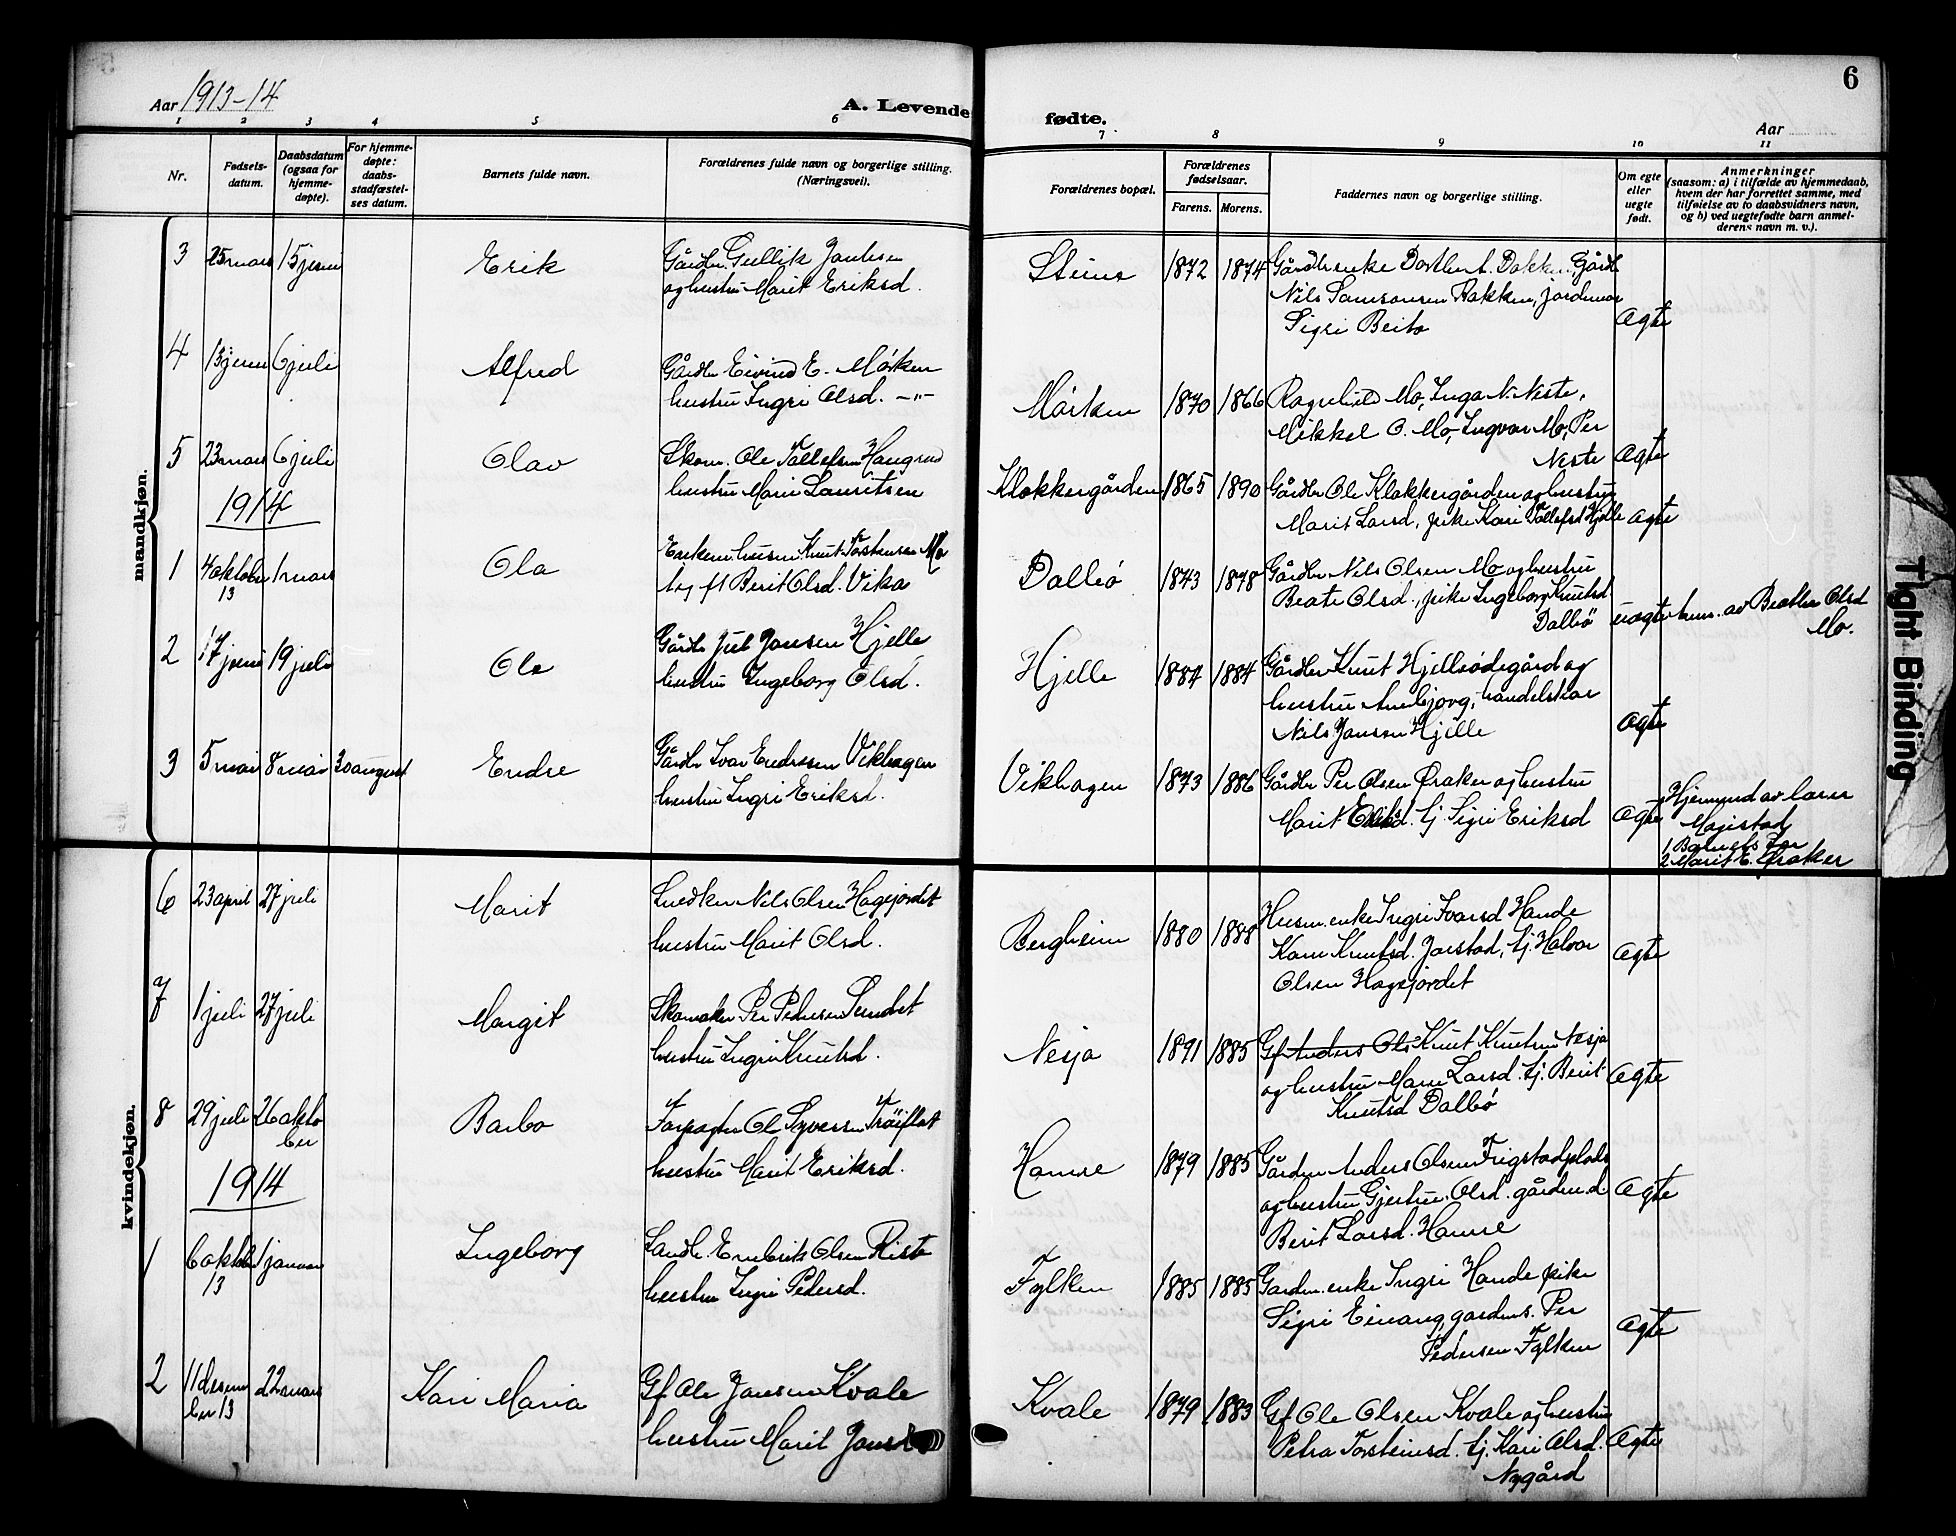 Aar 1913-14
A. Levende fødte.
6
Aar
1 2 3 4 5 6 7 8 9 10 11
Nr.
Fødsels-
datum.
Daabsdatum
(ogsaa for
hjemme-
døpte).
For hjemme-
døpte:
daabs-
stadfæstel-
ses datum.
Barnets fulde navn.
Forældrenes fulde navn og borgerlige stilling.
(Næringsvei).
Forældrenes bopæl.
Forældrenes
fødselsaar.
Farens. Morens.
Faddernes navn og borgerlige stilling.
Om egte
eller
uegte
født.
Anmerkninger
(saasom: a) i tilfælde av hjemmedaab,
hvem der har forrettet samme, med
tilføielse av to daabsvidners navn,
og b) ved uegtefødte barn anmel-
derens navn m. v.).
mandkjøn.
3 25 mars 15 juni Erik Gårdbr. Gullik
og hustru Marit Eriksd.
Steine 1872 1874 Gårdbr enke Gårdb
Nils Samsonsen Bakken, jordmor
Sigri Beito
Ægte
4 13 juni 6 juli Alfred Gårdbr Eivind E. Mörken
hustru Ingri Olsd. -"-
Mörken 1870 1866 Ragnhild Mo, Inga N. Neste,
Mikkel O. Mo, Ingvar Mo, Per
Neste Ægte
5 23 mars 6 juli Olav Skom. Ole Tollefsen Haugrud
hustru Marie Lauritsen
Klokkergården 1865 1890 Gårdbr Ole Klokkergården og hustru
Marit Larsd, pike Kari Tollefsd Hjelle Ægte
1914
1 4 oktober 13 1 mars Ola Enkem. husm. Knut Torstensen Mo
og f1 Berit Olsd. Vika
Dalbö 1843 1878 Gårdbr Nils Olsen Mo og hustru
Beate Olsd., pike Ingeborg Knutsd
Dalbö uægte av Beathe Olsd
Mo.
2 17 juni 19 juli Ole Gårdb Jul Jansen Hjelle
hustru Ingeborg Olsd.
Hjelle 1884 1884 Gårdbr Knut Hjellsödegård og
hustru Anbjorg, handelskar
Nils Jansen Hjelle Ægte
3 5 mai 8 mai 30 august Endre Gårdbr Ivar Endresen Vikhagen
hustru Ingri Eriksd.
Vikhagen 1873 1886 Gårdbr Per Olsen Øraker og hustru
Marit Eriksd. tj. Sigri Eriksd Ægte
Hjemmed av lærer
Magistad
1 Barnets Far
2 Marit E. Øraker
kvindekjøn.
6 23 april 27 juli Marit Snedker Nils Olsen Hagejordet
hustru Marit Olsd.
Bergheim 1880 1888 Husm. enke Ingri Ivarsd Hande
Kari Knutsd. Jarstad, tj. Halvor
Olsen Hagejordet Ægte
7 1 juli 27 juli Margit Skomaker Per Pedersen Sundet
hustru Ingri Knutsd.
Nesja 1891 1885 Gf Anders Ols Knut Knutsen Nesja
og hustru Marie Larsd. tj. Berit
Knutsd Dalbö Ægte
8 29 juli 26 okto
ber Barbo Forpagter Ol Syversen Tröiflat
hustru Marit Eriksd.
Hamre 1879 1885 Gårdm Anders Olsen Frigstadplads
og hustru Gjertrue Olsd. gårdm.d.
Berit Larsd. Hamre Ægte
1914
1 6 oktob 13 1 januar Ingeborg Landb. Embrik Olsen Riste
hustru Ingri Pedersd.
Fylken 1885 1885 Gardm. enke Ingri Hande pike
Sigri Einang, gardms. Per
Pedersen Fylken Ægte
2 11 desem
ber 13 22 mars Kari Maria Gf Ole Jansen Kvale
hustru Marit
Kvale 1879 1883 Gf Ole Olsen Kvale og hustru
Petra Torsteinsd. tj. Kari Olsd.
Nygård Ægte
Tight Binding